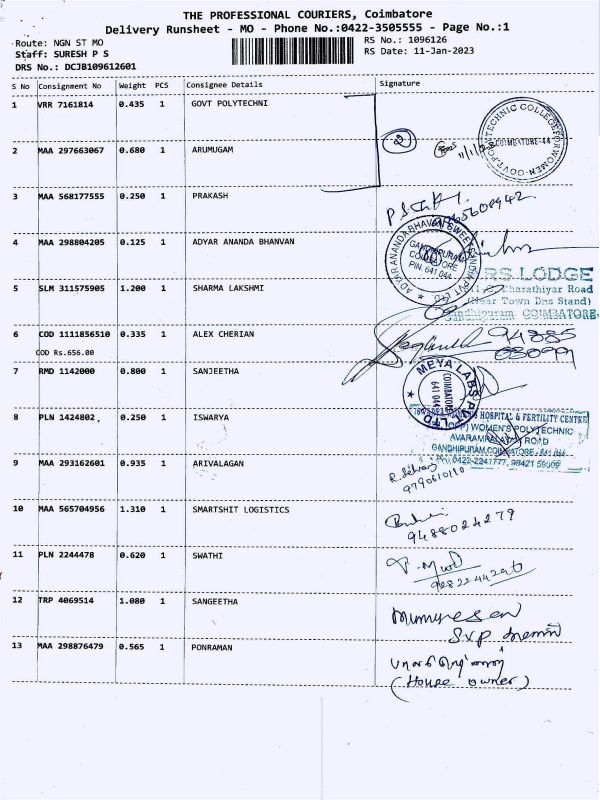 THE PROFESSIONAL COURIERS, Coimbatore
Delivery Runsheet - MO - Phone No.:0422-3505555 - Page No.:1
Route: NGN ST MO
RS No.: 1096126
Staff: SURESH P S
RS Date: 11-Jan-2023
DRS No.: DCJB109612601
S No Consignment No Weight PCS Consignee Details Signature
1 VRR 7161814 0.435 1 GOVT POLYTECHNI
2 11/1/23
COIMBATORE-44
2 MAA 297663067 0.680 1 ARUMUGAM
3 MAA 568177555 0.250 1 PRAKASH
4 MAA 298804205 0.125 1 ADYAR ANANDA BHANVAN
ADYAR ANANDA BHAVAN SWEET
GANDHIPURAM
COIMBATORE
PIN. 641 044
5 SLM 311575905 1.200 1 SHARMA LAKSHMI
RS LODGE
Bharathiyar Road
(Near Town Bus Stand)
Gandhipuram, COIMBATORE-
6 COD 1111856510 0.335 1 ALEX CHERIAN
94885
COD Rs.656.00
7 RMD 1142000 0.800 1 SANJEETHA
MEYA LABS PVT LTD
COIMBATORE
641 044
8 PLN 1424802, 0.250 1 ISWARYA
HOSPITAL & FERTILITY CENTRE
WOMEN'S POLYTECHNIC
AVARAMPALAYAM ROAD
GANDHIPURAM, COIMBATORE - 641 044
Ph: 0422-2241777, 98421 59009
9 MAA 293162601 0.935 1 ARIVALAGAN
R. Selvaraj
9790610110
10 MAA 565704956 1.310 1 SMARTSHIT LOGISTICS
9488024279
11 PLN 2244478 0.620 1 SWATHI
12 TRP 4069514 1.080 1 SANGEETHA
S.V.P
13 MAA 298876479 0.565 1 PONRAMAN
(House owner)